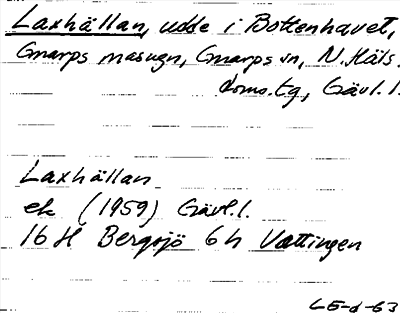 Laxhällan, udde i Bottenhavet,
Gnarps masugn, Gnarps sn, N. Häls.
doms.tg, Gävl.l.
Laxhällan
ek (1959) Gävl.l.
16 H Bergsjö 6 h Vattingen